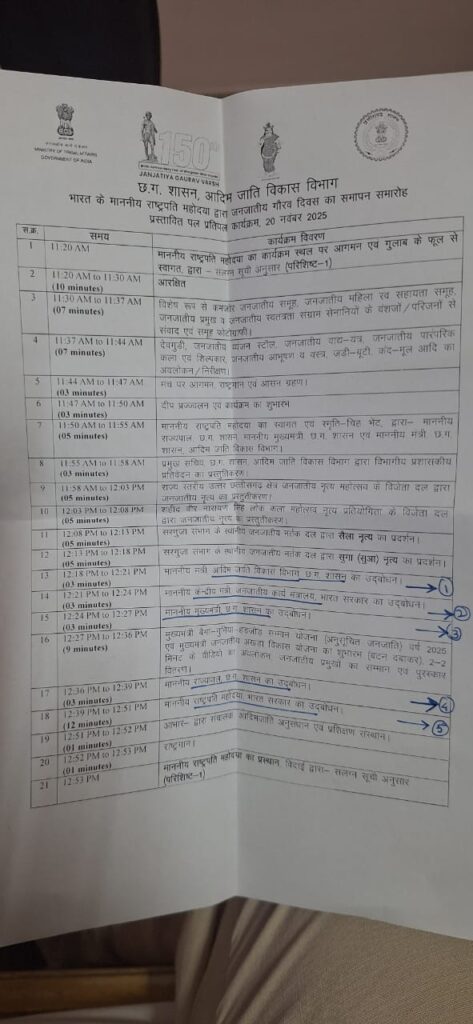 MINISTRY OF TRIBAL AFFAIRS
GOVERNMENT OF INDIA
150
JANJATIYA GAURAV VARSH
छ.ग. शासन, आदिम जाति विकास विभाग
भारत के माननीय राष्ट्रपति महोदया द्वारा जनजातीय गौरव दिवस का समापन समारोह
प्रस्तावित पल प्रतिपल कार्यक्रम, 20 नवंबर 2025
स.क्र. समय कार्यक्रम विवरण
1 11:20 AM माननीय राष्ट्रपति महोदया का कार्यक्रम स्थल पर आगमन एवं गुलाब के फूल से
स्वागत, द्वारा – संलग्न सूची अनुसार (परिशिष्ट-1)
2 11:20 AM to 11:30 AM आरक्षित
(10 minutes)
3 11:30 AM to 11:37 AM विशेष रूप से कमजोर जनजातीय समूह, जनजातीय महिला स्व सहायता समूह,
(07 minutes) जनजातीय प्रमुख व जनजातीय स्वतंत्रता संग्राम सेनानियों के वंशजों/परिजनों से
संवाद एवं समूह फोटोग्राफी।
4 11:37 AM to 11:44 AM देवगुड़ी, जनजातीय व्यंजन स्टॉल, जनजातीय वाद्य-यंत्र, जनजातीय पारंपरिक
(07 minutes) कला एवं शिल्पकार, जनजातीय आभूषण व वस्त्र, जड़ी-बूटी, कंद-मूल आदि का
अवलोकन/निरीक्षण।
5 11:44 AM to 11:47 AM मंच पर आगमन, राष्ट्रगान एवं आसन ग्रहण।
(03 minutes)
6 11:47 AM to 11:50 AM दीप प्रज्ज्वलन एवं कार्यक्रम का शुभारंभ
(03 minutes)
7 11:50 AM to 11:55 AM माननीय राष्ट्रपति महोदया का स्वागत एवं स्मृति-चिह भेंट, द्वारा– माननीय
(05 minutes) राज्यपाल, छ.ग. शासन, माननीय मुख्यमंत्री छ.ग. शासन एवं माननीय मंत्री छ.ग.
शासन, आदिम जाति विकास विभाग।
8 11:55 AM to 11:58 AM प्रमुख सचिव छ.ग. शासन, आदिम जाति विकास विभाग द्वारा विभागीय प्रशासकीय
(03 minutes) प्रतिवेदन का प्रस्तुतिकरण।
9 11:58 AM to 12:03 PM राज्य स्तरीय उत्तर छत्तीसगढ़ क्षेत्र जनजातीय नृत्य महोत्सव के विजेता दल द्वारा
(05 minutes) जनजातीय नृत्य का प्रस्तुतीकरण।
10 12:03 PM to 12:08 PM शहीद वीर नारायण सिंह लोक कला महोत्सव नृत्य प्रतियोगिता के विजेता दल
(05 minutes) द्वारा जनजातीय नृत्य का प्रस्तुतीकरण।
11 12:08 PM to 12:13 PM सरगुजा संभाग के स्थानीय जनजातीय नर्तक दल द्वारा सैला नृत्य का प्रदर्शन।
(05 minutes)
12 12:13 PM to 12:18 PM सरगुजा संभाग के स्थानीय जनजातीय नर्तक दल द्वारा सुगा (सुआ) नृत्य का प्रदर्शन।
(05 minutes)
13 12:18 PM to 12:21 PM माननीय मंत्री आदिम जाति विकास विभाग, छ.ग. शासन का उद्बोधन। → 1
(03 minutes)
14 12:21 PM to 12:24 PM माननीय केन्द्रीय मंत्री, जनजातीय कार्य मंत्रालय, भारत सरकार का उद्बोधन। → 2
(03 minutes)
15 12:24 PM to 12:27 PM माननीय मुख्यमंत्री छ.ग. शासन का उद्बोधन। → 3
(03 minutes)
16 12:27 PM to 12:36 PM मुख्यमंत्री बैगा-गुनिया-हड़जोड़ सम्मान योजना (अनुसूचित जनजाति) वर्ष 2025
(9 minutes) एवं मुख्यमंत्री जनजातीय अखरा विकास योजना का शुभारंभ (बटन दबाकर), 2-2
मिनट के वीडियो का अवलोकन, जनजातीय प्रमुखों का सम्मान एवं पुरस्कार
वितरण।
17 12:36 PM to 12:39 PM माननीय राज्यपाल, छ.ग. शासन का उद्बोधन। → 4
(03 minutes)
18 12:39 PM to 12:51 PM माननीय राष्ट्रपति महोदया, भारत सरकार का उद्बोधन। → 5
(12 minutes)
19 12:51 PM to 12:52 PM आभार– द्वारा संचालक आदिमजाति अनुसंधान एवं प्रशिक्षण संस्थान।
(01 minutes)
20 12:52 PM to 12:53 PM राष्ट्रगान।
(01 minutes)
21 12:53 PM माननीय राष्ट्रपति महोदया का प्रस्थान, विदाई द्वारा– संलग्न सूची अनुसार
(परिशिष्ट-1)